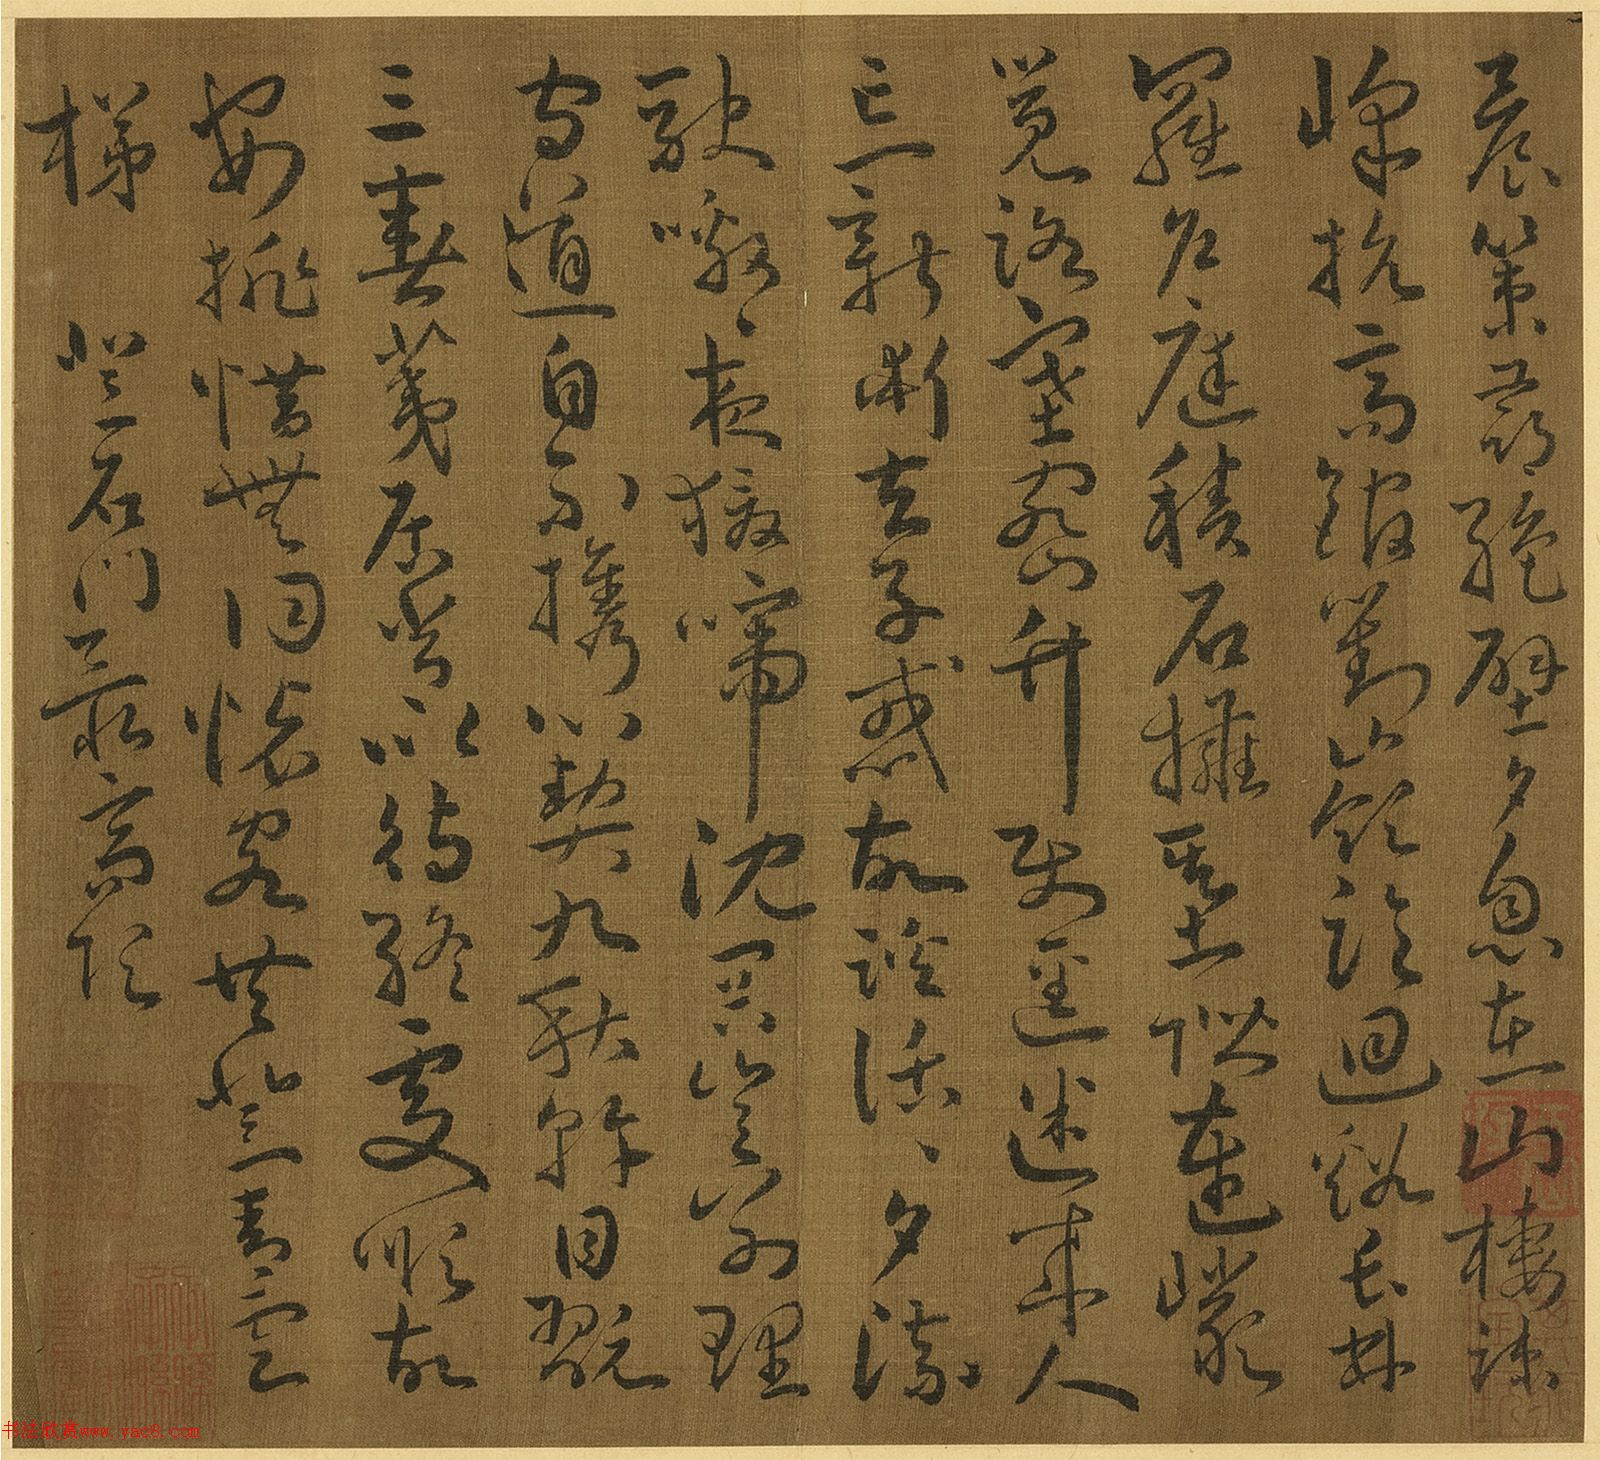 晨策尋絕壁夕息在山棲疎
峰抗高館對嶺臨迴谿長林
羅戶庭積石擁基階連巖
覺路塞密竹使逕迷來人
忘新術去子惑故蹊活〻夕流
駛噭〻夜猨啼沈冥豈別理
守道自不攜心契九秋幹目翫
三春荑居常以待終處順故
安排惜無同懷客共登青雲
梯 登石門最高頂
书法欣赏www.yac8.com